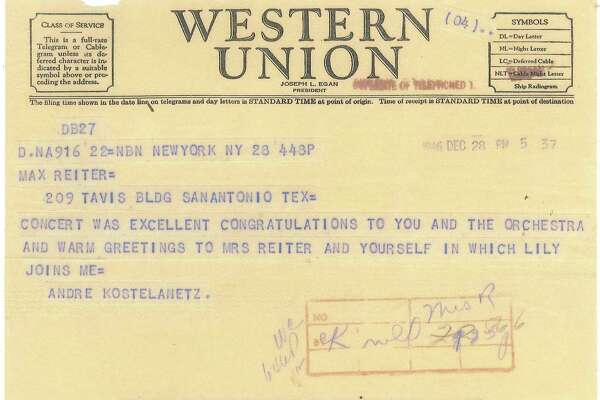 CLASS OF SERVICE
This is a full-rate
Telegram or Cable-
gram unless its de-
ferred character is in-
dicated by a suitable
symbol above or pre-
ceding the address.
WESTERN
UNION
JOSEPH L. EGAN
PRESIDENT
(04)..
DUPLICATE OF TELEPHONED
SYMBOLS
DL=Day Letter
NL=Night Letter
LC=Deferred Cable
NLT=Cable Night Letter
Ship Radiogram
The filing time shown in the date line on telegrams and day letters is STANDARD TIME at point of origin. Time of receipt is STANDARD TIME at point of destination
DB27
D.NA916 22=NBN NEWYORK NY 28 448P
1946 DEC 28 PM 5 37
MAX REITER=
209 TAVIS BLDG SANANTONIO TEX=
CONCERT WAS EXCELLENT CONGRATULATIONS TO YOU AND THE ORCHESTRA
AND WARM GREETINGS TO MRS REITER AND YOURSELF IN WHICH LILY
JOINS ME=
ANDRE KOSTELANETZ.
NO
Mrs R